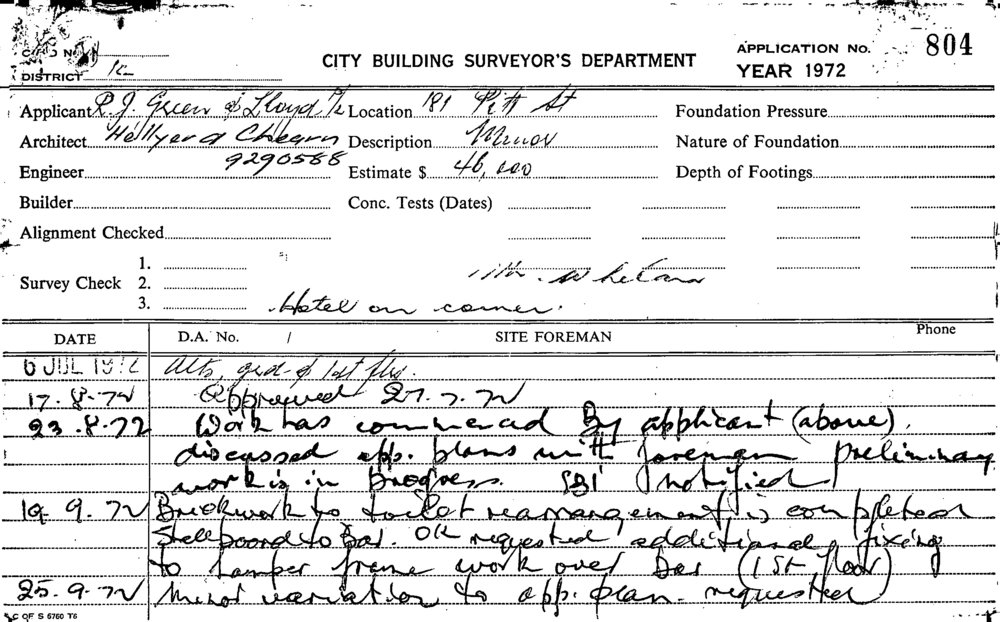 CARD No.
DISTRICT
CITY BUILDING SURVEYOR'S DEPARTMENT
APPLICATION No. 804
YEAR 1972
Applicant R. J. Green & Lloyd P/L Location 181 Pitt St Foundation Pressure
Architect Hellyer & Ahearn Description Minor Nature of Foundation
9290588
Engineer Estimate $ 46,000 Depth of Footings
Builder Conc. Tests (Dates)
Alignment Checked
Survey Check 1.
2. Mr. Whelans
3. Hotel on corner.
DATE D.A. No. / SITE FOREMAN Phone
6 JUL 1972 Alts, grd & 1st flrs.
17.8.72 Approved 27.7.72
23.8.72 Work has commenced By applicant (above).
discussed app. plans with foreman preliminary
work is in progress. SBI notified
19.9.72 Brickwork to toilet rearrangement is completed
to Bar. OK requested additional fixing
to tamper frame work over bar (1st floor)
25.9.72 Minor variation to app. plan requested
C OF S 5760 T6